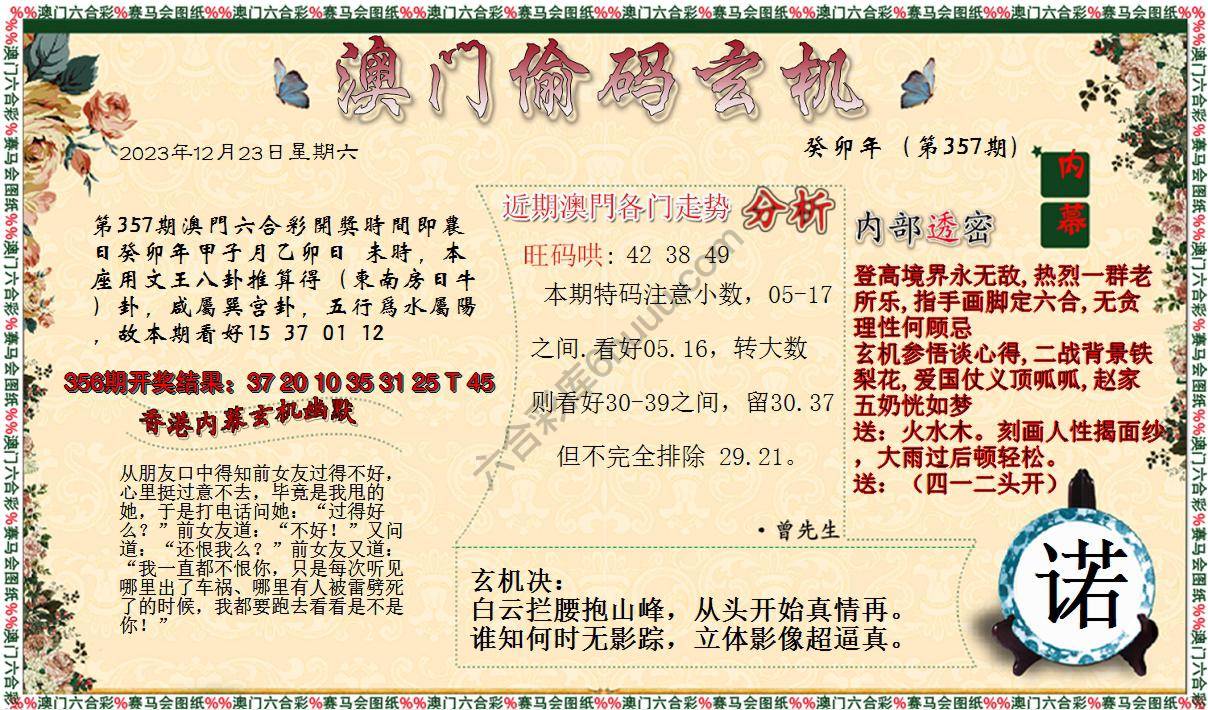 %%澳门六合彩%赛马会图纸%%澳门六合彩%赛马会图纸%%澳门六合彩%赛马会图纸%%澳门六合彩%赛马会图纸%%澳门六合彩%赛马会图纸%%澳门六合彩%赛马会图纸%%
澳门偷码玄机
2023年12月23日星期六
癸卯年（第357期）
内
幕
第357期澳門六合彩開獎時間即農
日癸卯年甲子月乙卯日 未時，本
座用文王八卦推算得（東南房日牛
）卦，咸屬巽宫卦，五行爲水屬陽
，故本期看好15 37 01 12
356期开奖结果：37 20 10 35 31 25 T 45
香港内幕玄机幽默
从朋友口中得知前女友过得不好，
心里挺过意不去，毕竟是我甩的
她，于是打电话问她：“过得好
么？”前女友道：“不好！”又问
道：“还恨我么？”前女友又道：
“我一直都不恨你，只是每次听见
哪里出了车祸、哪里有人被雷劈死
了的时候，我都要跑去看看是不是
你！”
近期澳門各门走势 分析
旺码哄: 42 38 49
本期特码注意小数，05-17
之间.看好05.16，转大数
则看好30-39之间，留30.37
但不完全排除 29.21。
·曾先生
内部透密
登高境界永无敌,热烈一群老
所乐,指手画脚定六合,无贪
理性何顾忌
玄机参悟谈心得,二战背景铁
梨花,爱国仗义顶呱呱,赵家
五奶恍如梦
送：火水木。刻画人性揭面纱
，大雨过后顿轻松。
送：（四一二头开）
玄机决：
白云拦腰抱山峰，从头开始真情再。
谁知何时无影踪，立体影像超逼真。
诺
%%澳门六合彩%赛马会图纸%%澳门六合彩%赛马会图纸%%澳门六合彩%赛马会图纸%%澳门六合彩%赛马会图纸%%澳门六合彩%赛马会图纸%%澳门六合彩%赛马会图纸%%